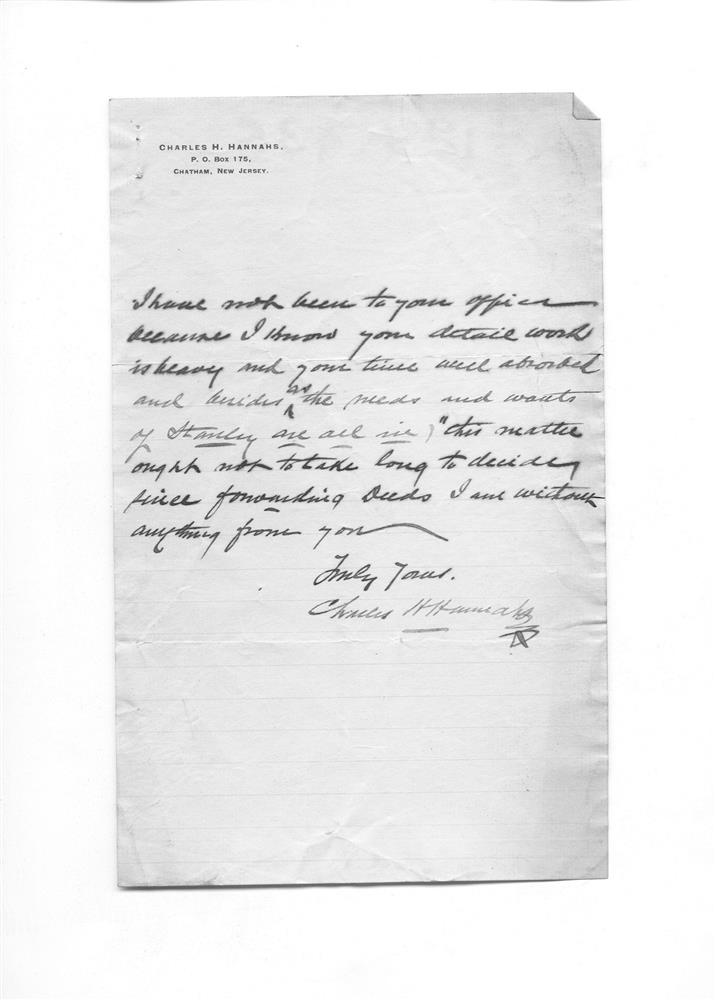 CHARLES H. HANNAHS.
P. O. BOX 175,
CHATHAM, NEW JERSEY.
I have not been to your office
because I know your detail work
is heavy and your time well absorbed
and besides as the needs and wants
of Stanley are all in) "this matter
ought not to take long to decide,
since forwarding Deeds I am without
anything from you
Truly Yours.
Charles H Hannahs